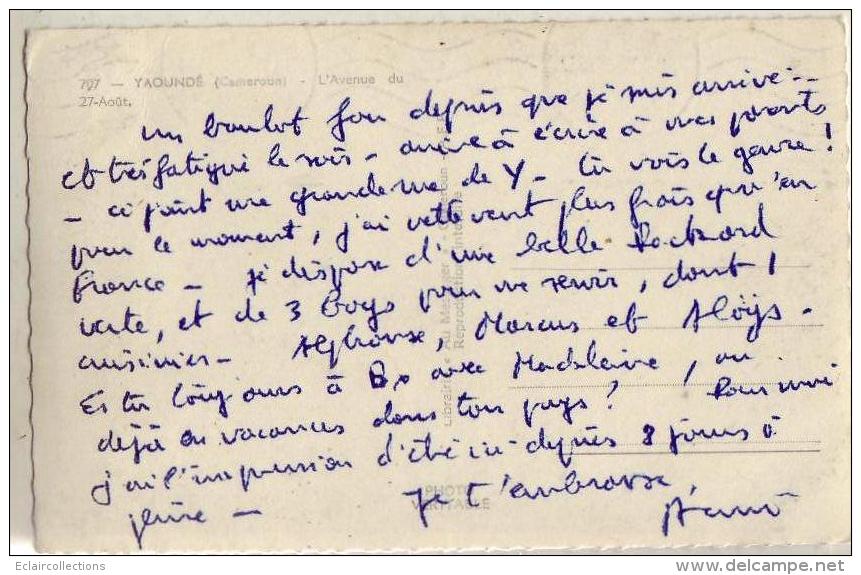 797 — YAOUNDÉ (Cameroun) - L'Avenue du
27-Août.
un boulot fou depuis que je suis arrivé -
et très fatigué le soir - arrive à écrire à mes parents
- ci joint une grande rue de Y - tu vois le genre !
pour le moment, j'ai nettement plus frais qu'en
France - je dispose d'une belle Packard
verte, et de 3 boys pour me servir, dont 1
cuisinier - Alphonse, Marcus et Aloÿs -
Es tu toujours à Bx avec Madeleine, ou
déjà en vacances dans ton pays ? Pour moi
j'ai l'impression d'être ici depuis 8 jours à
peine - Je t'embrasse,
PHOTO
VÉRITABLE
Eclaircollections
www.delcampe.net